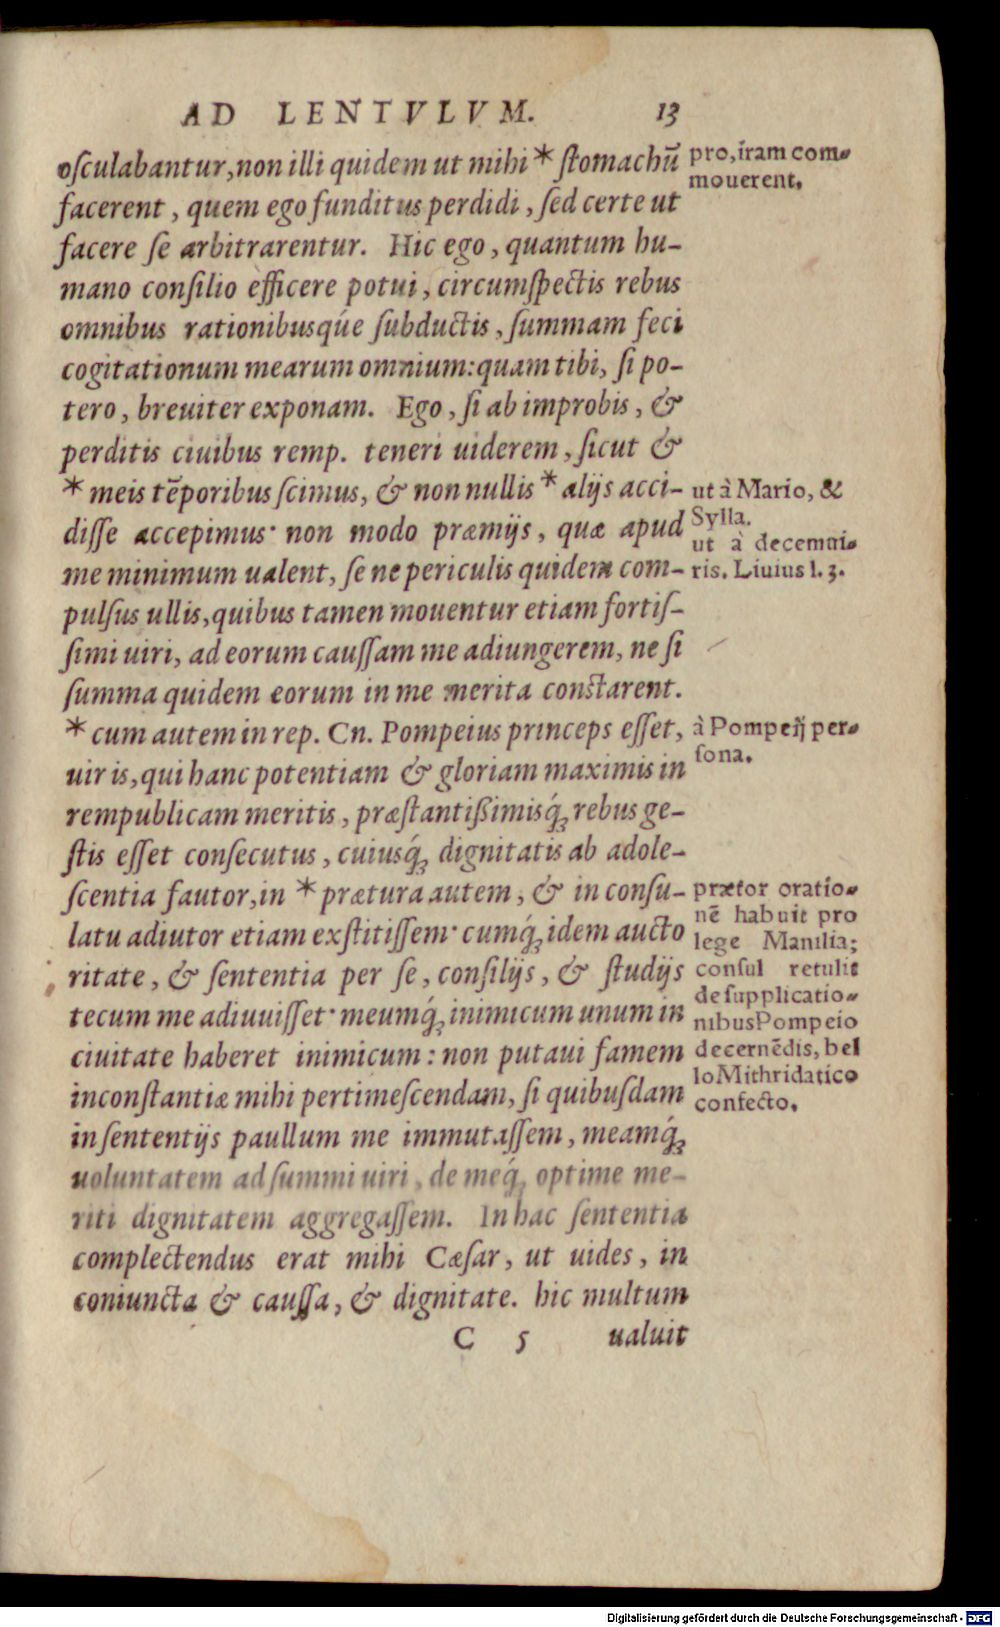 AD LENTVLVM. 13
osculabantur, non illi quidem ut mihi * stomachū
facerent, quem ego funditus perdidi, sed certe ut
facere se arbitrarentur. Hic ego, quantum hu-
mano consilio efficere potui, circumspectis rebus
omnibus rationibusq́ue subductis, summam feci
cogitationum mearum omnium: quam tibi, si po-
tero, breuiter exponam. Ego, si ab improbis, &
perditis ciuibus remp. teneri uiderem, sicut &
* meis tēporibus scimus, & non nullis * alijs acci-
disse accepimus· non modo præmijs, quæ apud
me minimum ualent, sed ne periculis quidem com-
pulsus ullis, quibus tamen mouentur etiam fortis-
simi uiri, ad eorum caussam me adiungerem, ne si
summa quidem eorum in me merita constarent.
* cum autem in rep. Cn. Pompeius princeps esset,
uir is, qui hanc potentiam & gloriam maximis in
rempublicam meritis, præstantißimisq́; rebus ge-
stis esset consecutus, cuiusq́; dignitatis ab adole-
scentia fautor, in * prætura autem, & in consu-
latu adiutor etiam exstitissem· cumq́; idem aucto
ritate, & sententia per se, consilijs, & studijs
tecum me adiuuisset· meumq́; inimicum unum in
ciuitate haberet inimicum: non putaui famem
inconstantiæ mihi pertimescendam, si quibusdam
in sententijs paullum me immutassem, meamq́;
uoluntatem ad summi uiri, de meq́; optime me-
riti dignitatem aggregassem. In hac sententia
complectendus erat mihi Cæsar, ut uides, in
coniuncta & caussa, & dignitate. hic multum
C 5 ualuit
pro, iram com-
mouerent.
ut à Mario, &
Sylla.
ut à decemui-
ris. Liuius l. 3.
à Pompeij per-
sona.
prætor oratio-
nē habuit pro
lege Manilia;
consul retulit
de supplicatio-
nibus Pompeio
decernēdis, bel
lo Mithridatico
confecto.
Digitalisierung gefördert durch die Deutsche Forschungsgemeinschaft - DFG